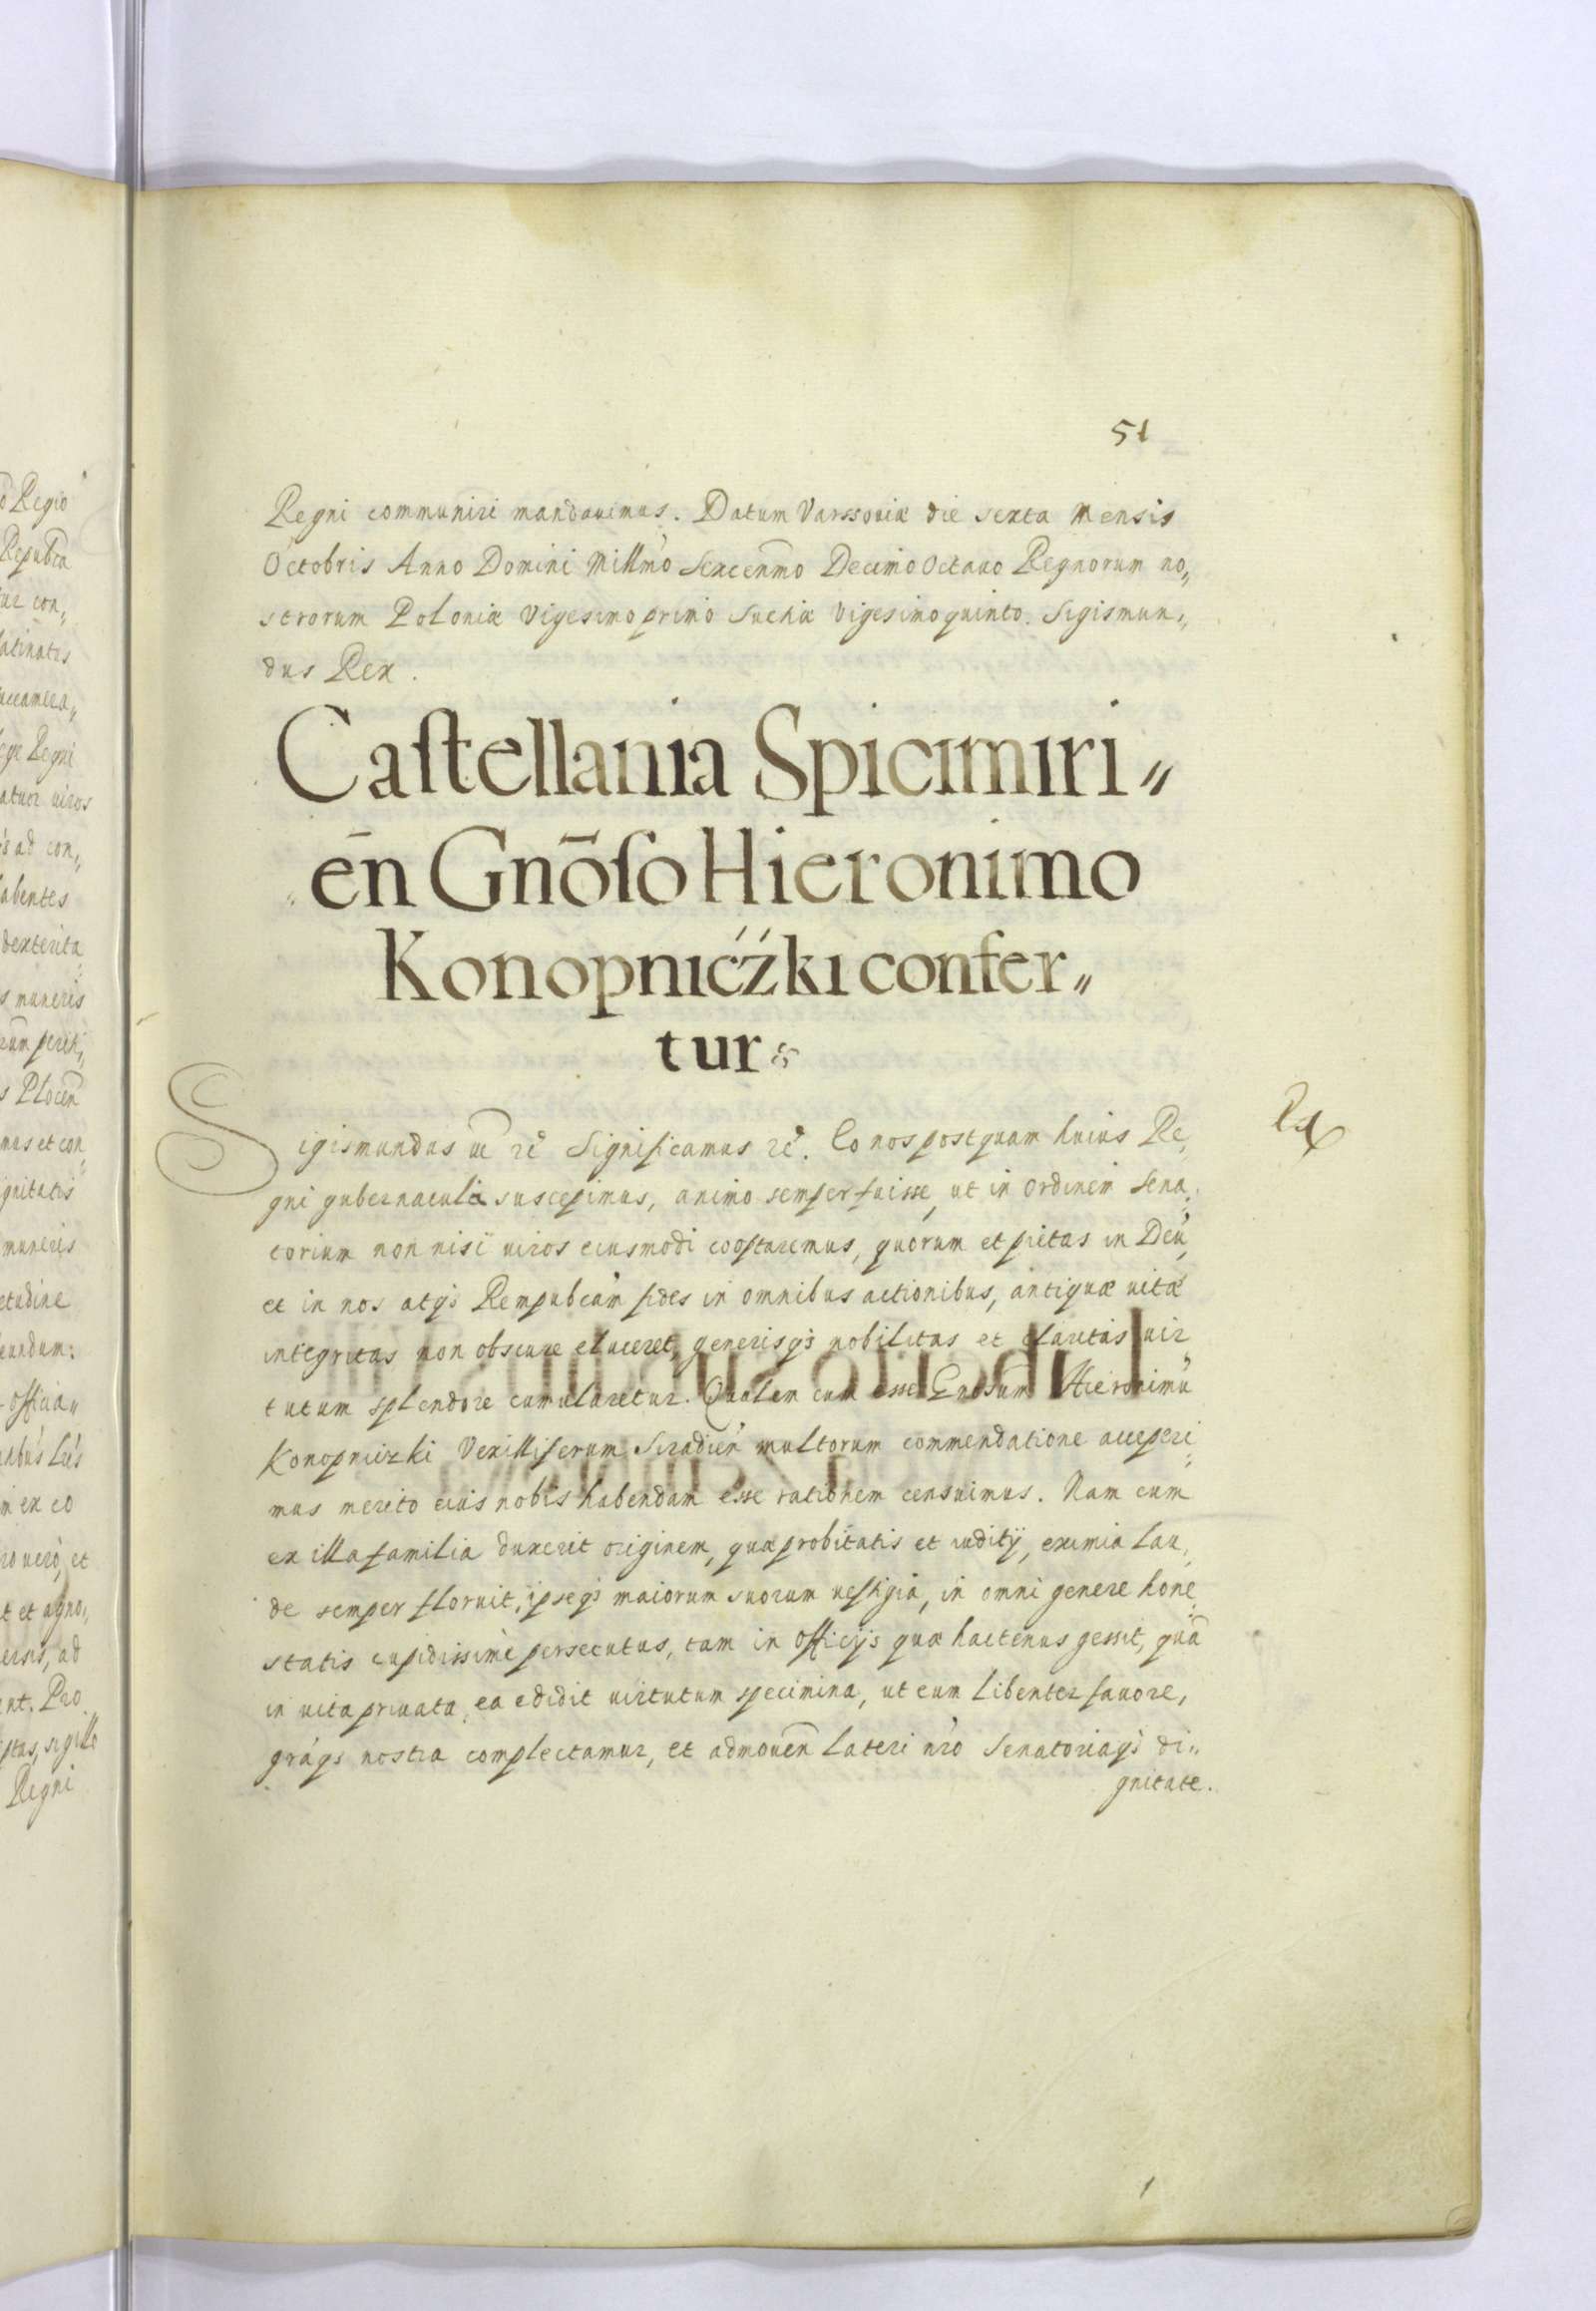 51
Regni communiri mandauimus. Datum Varssouiæ die sexta Mensis
Octobris Anno Domini Millmo Sexcenmo Decimo Octauo Regnorum no„
strorum Poloniæ Vigesimo primo Sueciæ Vigesimo quinto. Sigismun„
dus Rex.
Caſtellania Spicimiri„
en̄ Gnōſo Hieronimo
Konopnićźki confer„
tur
Sigismundus etc Significamus etc. Eo nos postquam huius Re„
gni gubernacula suscepimus, animo semper fuisse, ut in ordinem Sena„
torium non nisi uiros eiusmodi cooptaremus, quorum et pietas in Deũ,
et in nos atqȝ Rempubcam fides in omnibus actionibus, antiquæ uitæ
integritas non obscure eluceret, generisqȝ nobilitas et claritas uir„
tutum splendore cumularetur. Qualem cum esse Gnosum Hieronimũ
Konopnizki Vexilliferum Siradień multorum commendatione acceperi„
mus merito eius nobis habendam esse rationem censuimus. Nam cum
ex illa familia duxerit originem, quæ probitatis et iuditij, eximia lau„
de semper floruit, ipseqȝ maiorum suorum uestigia, in omni genere hone„
statis cupidissime persecutus, tam in officijs quæ hactenus gessit, quã
in uita priuata, ea edidit uirtutum specimina, ut eum libenter fauore,
grãqȝ nostra complectamur, et admouen̄ lateri nrõ Senatoriaqȝ di„
gnitate.
ð Regio
con„
Regni
uiros
ad con„
abentes
dexterita„
muneris
Plocen̄
mus et con„
ignitatis
muneris
eundum:
officia„
ex eo
uero, et
et agno„
ad
Pro
sigillo
Regni